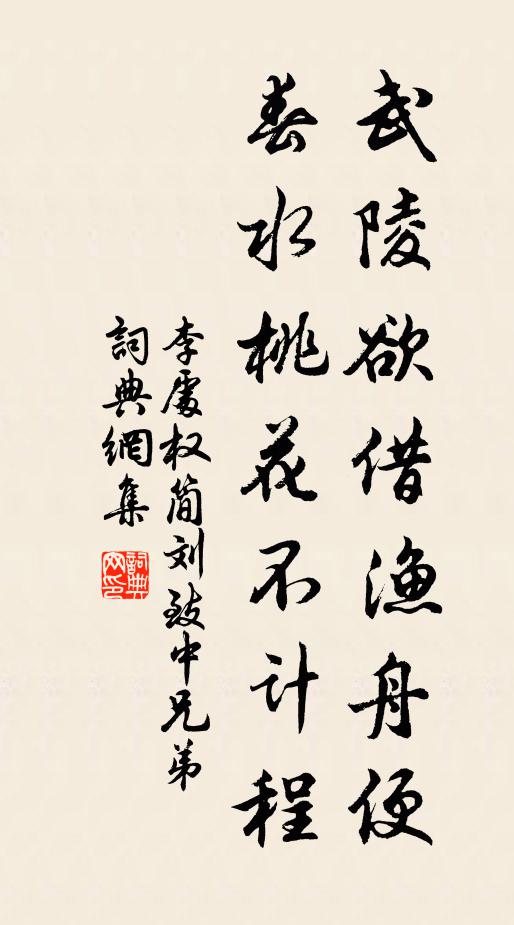 武陵欲借渔舟便
春水桃花不计程
李處权简刘致中兄弟
詞典網集
詞典网印